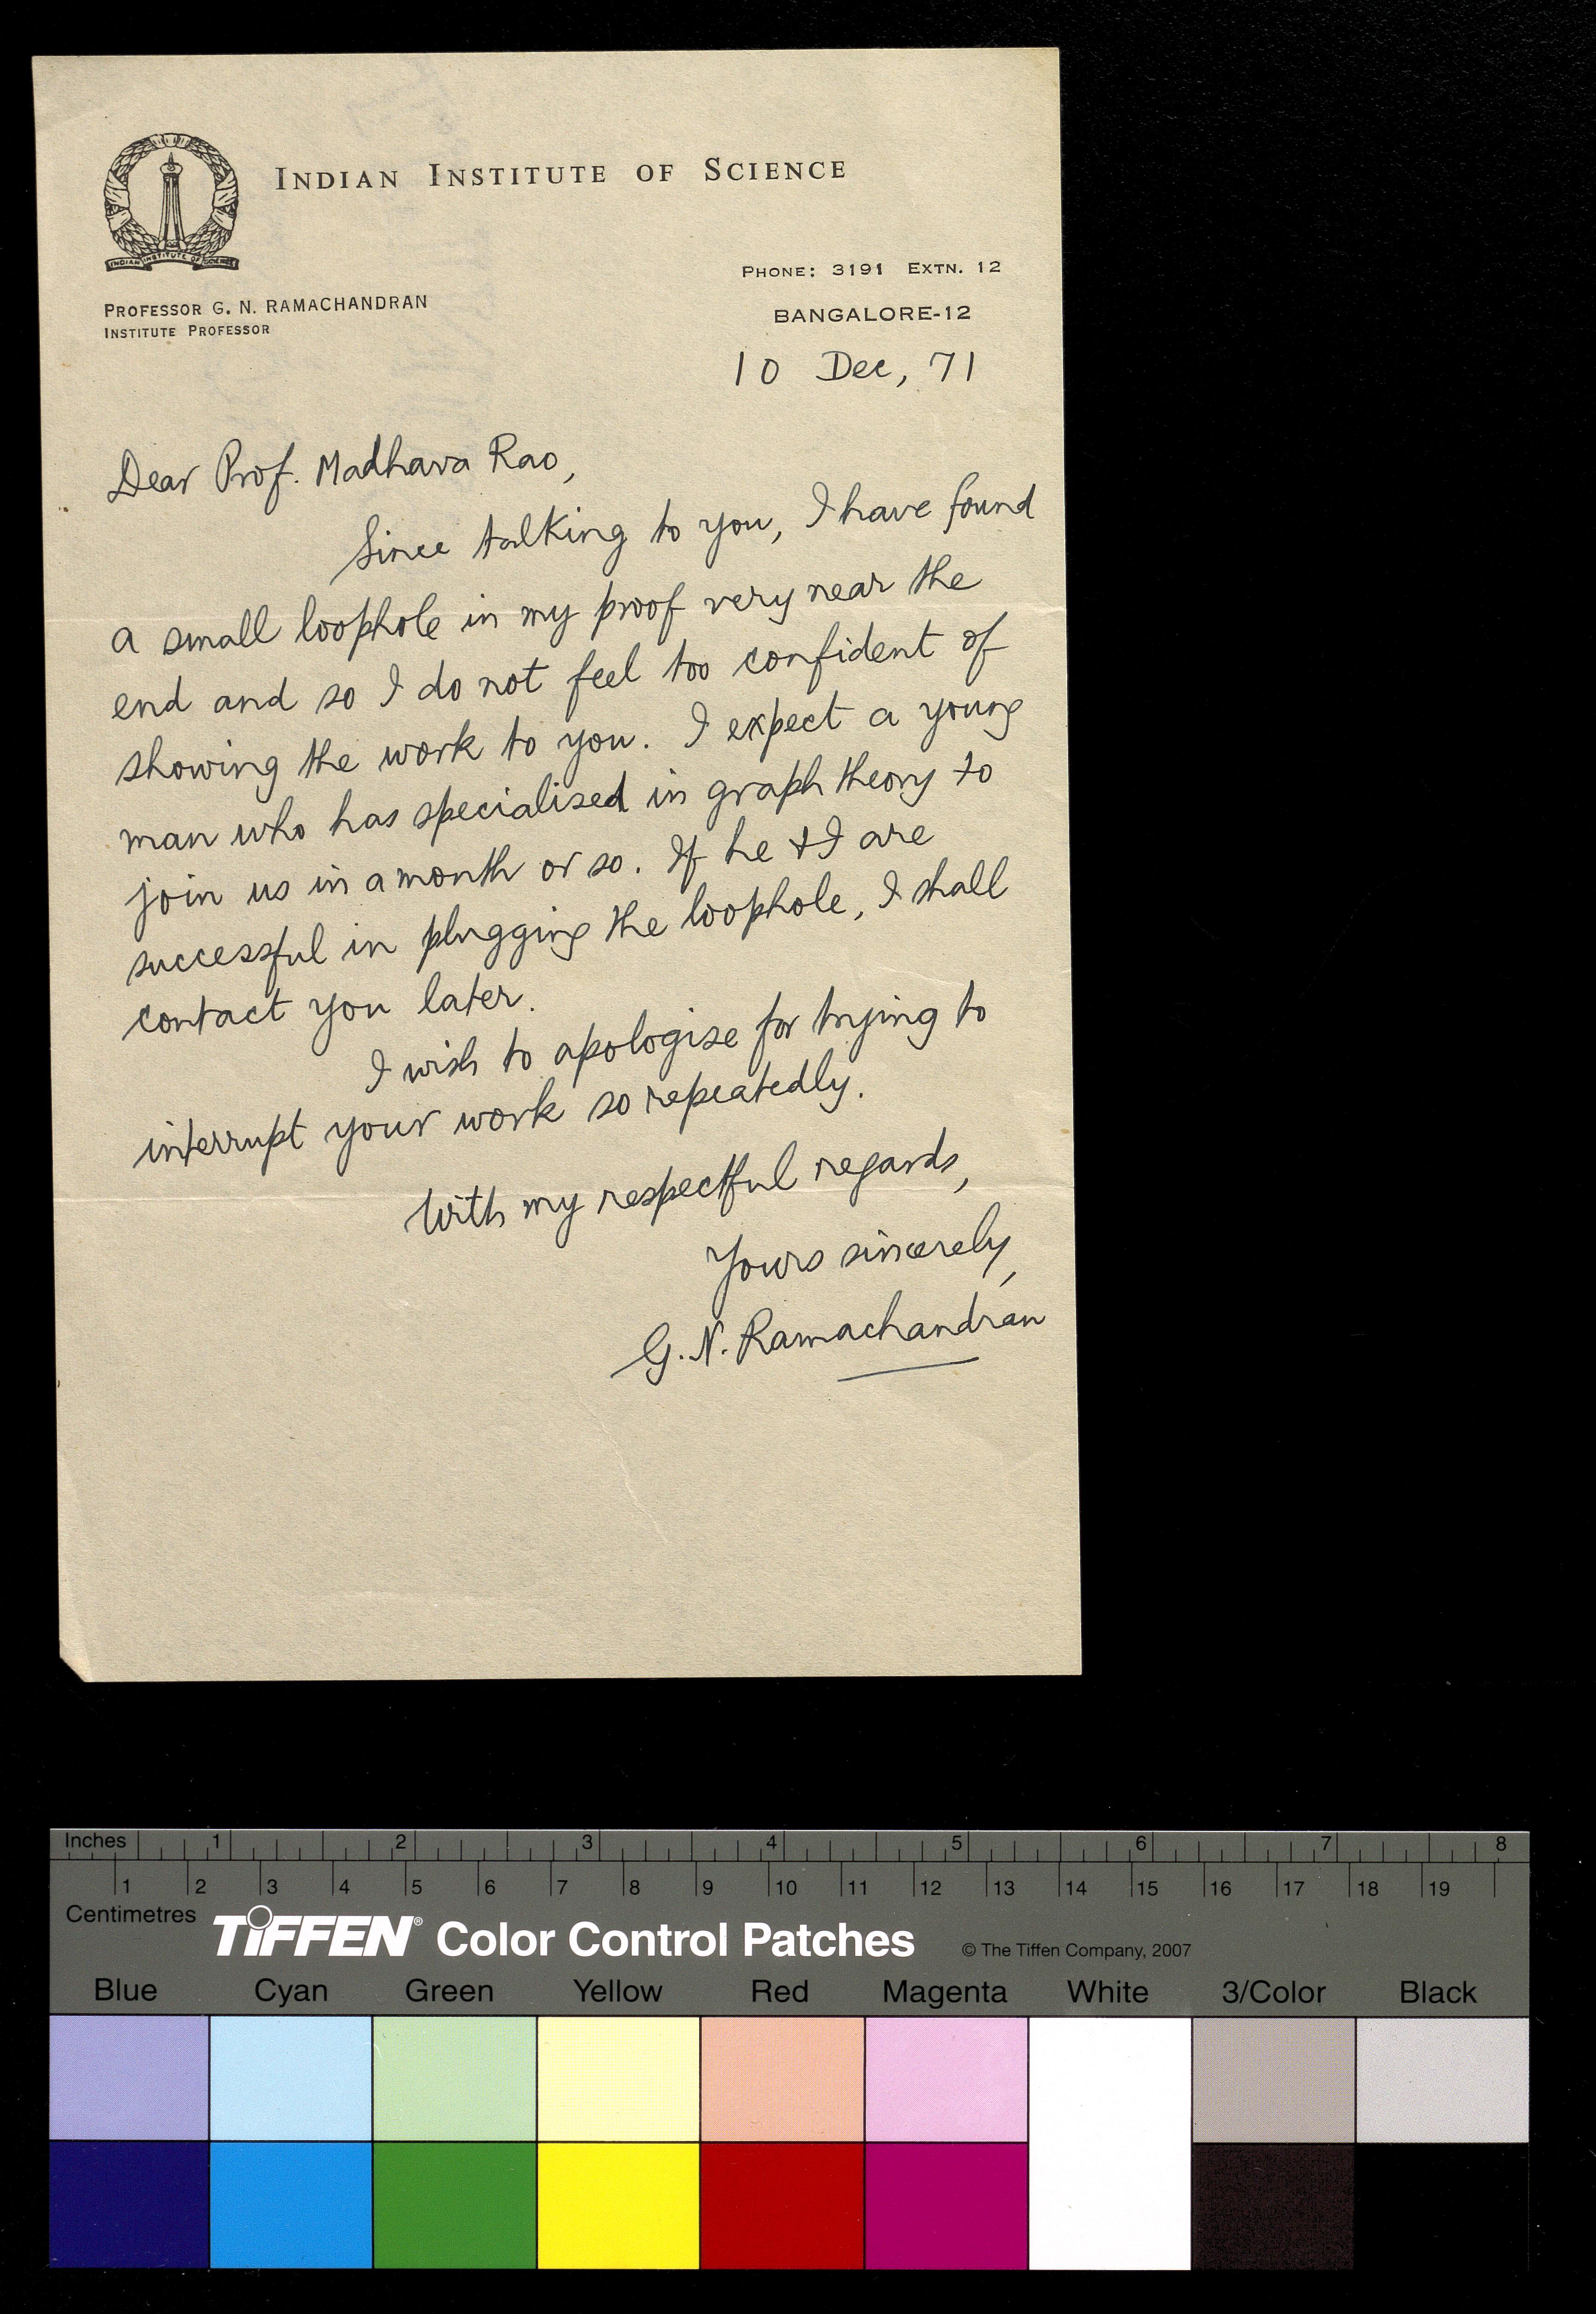 INDIAN INSTITUTE OF SCIENCE
INDIAN INSTITUTE OF SCIENCE
PHONE: 3191 EXTN. 12
PROFESSOR G. N. RAMACHANDRAN
INSTITUTE PROFESSOR
BANGALORE-12
10 Dec, 71
Dear Prof. Madhava Rao,
Since talking to you, I have found
a small loophole in my proof very near the
end and so I do not feel too confident of
showing the work to you. I expect a young
man who has specialised in graph theory to
join us in a month or so. If he & I are
successful in plugging the loophole, I shall
contact you later.
I wish to apologise for trying to
interrupt your work so repeatedly.
With my respectful regards,
Yours sincerely,
G. N. Ramachandran
Inches 1 2 3 4 5 6 7 8
1 2 3 4 5 6 7 8 9 10 11 12 13 14 15 16 17 18 19
Centimetres
TIFFEN® Color Control Patches © The Tiffen Company, 2007
Blue Cyan Green Yellow Red Magenta White 3/Color Black